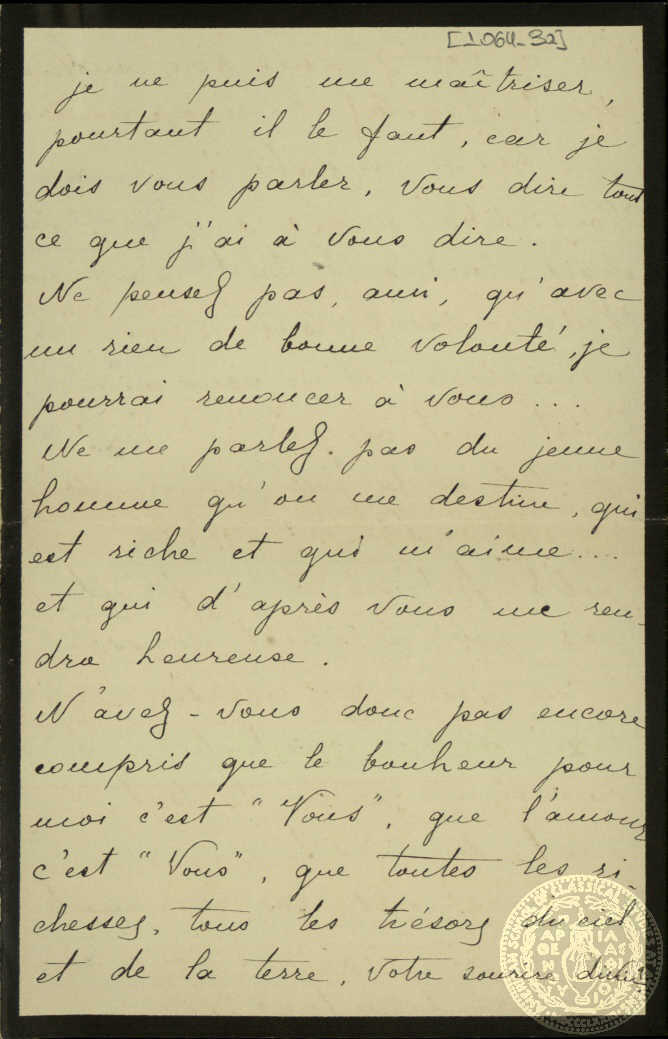 [1064-32]
je ne puis me maîtriser,
pourtant il le faut, car je
dois vous parler, vous dire tout
ce que j'ai à vous dire.
Ne pensez pas, ami, qu'avec
un rien de bonne volonté, je
pourrai renoncer à vous...
Ne me parlez pas du jeune
homme qu'on me destine, qui
est riche et qui m'aime....
et qui d'après vous me ren-
dra heureuse.
N'avez-vous donc pas encore
compris que le bonheur pour
moi c'est "Vous", que l'amour
c'est "Vous", que toutes les ri-
chesses, tous les trésors du ciel
et de la terre, votre sourire